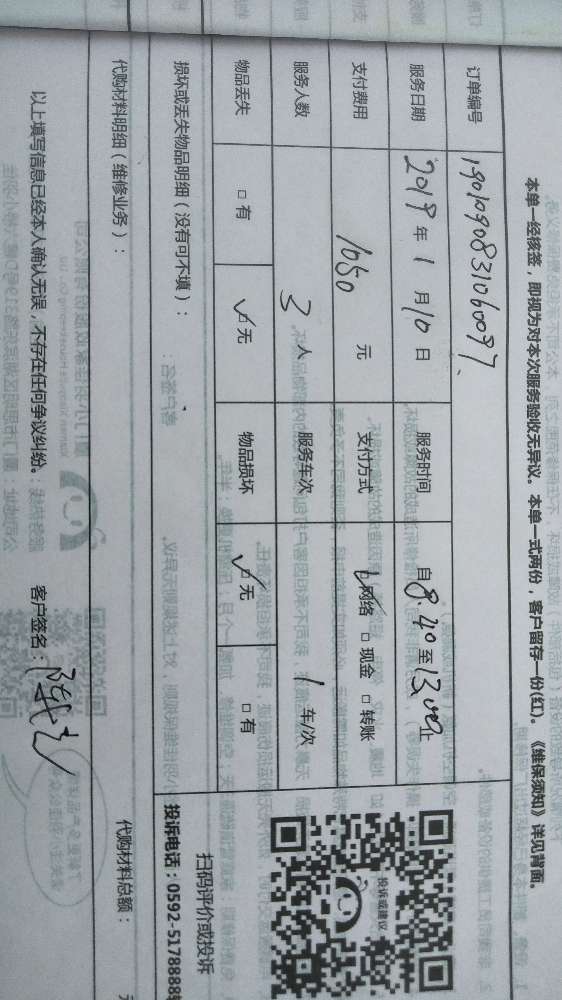 本单一经核签，即视为对本次服务验收无异议。本单一式两份，客户留存一份(红)。《维保须知》详见背面。
订单编号 190109083106097
服务日期 2019年1月10日 服务时间 自8.40至13.00止
支付费用 1050元 支付方式 ☑网络 □现金 □转账
服务人数 3人 服务车次 1车/次
物品丢失 □有 ☑无 物品损坏 ☑无 □有
投诉或建议
扫码评价或投诉
投诉电话：0592-5178888转
损坏或丢失物品明细（没有可不填）：
代购材料明细（维修业务）： 代购材料总额：
以上填写信息已经本人确认无误，不存在任何争议纠纷。 客户签名：